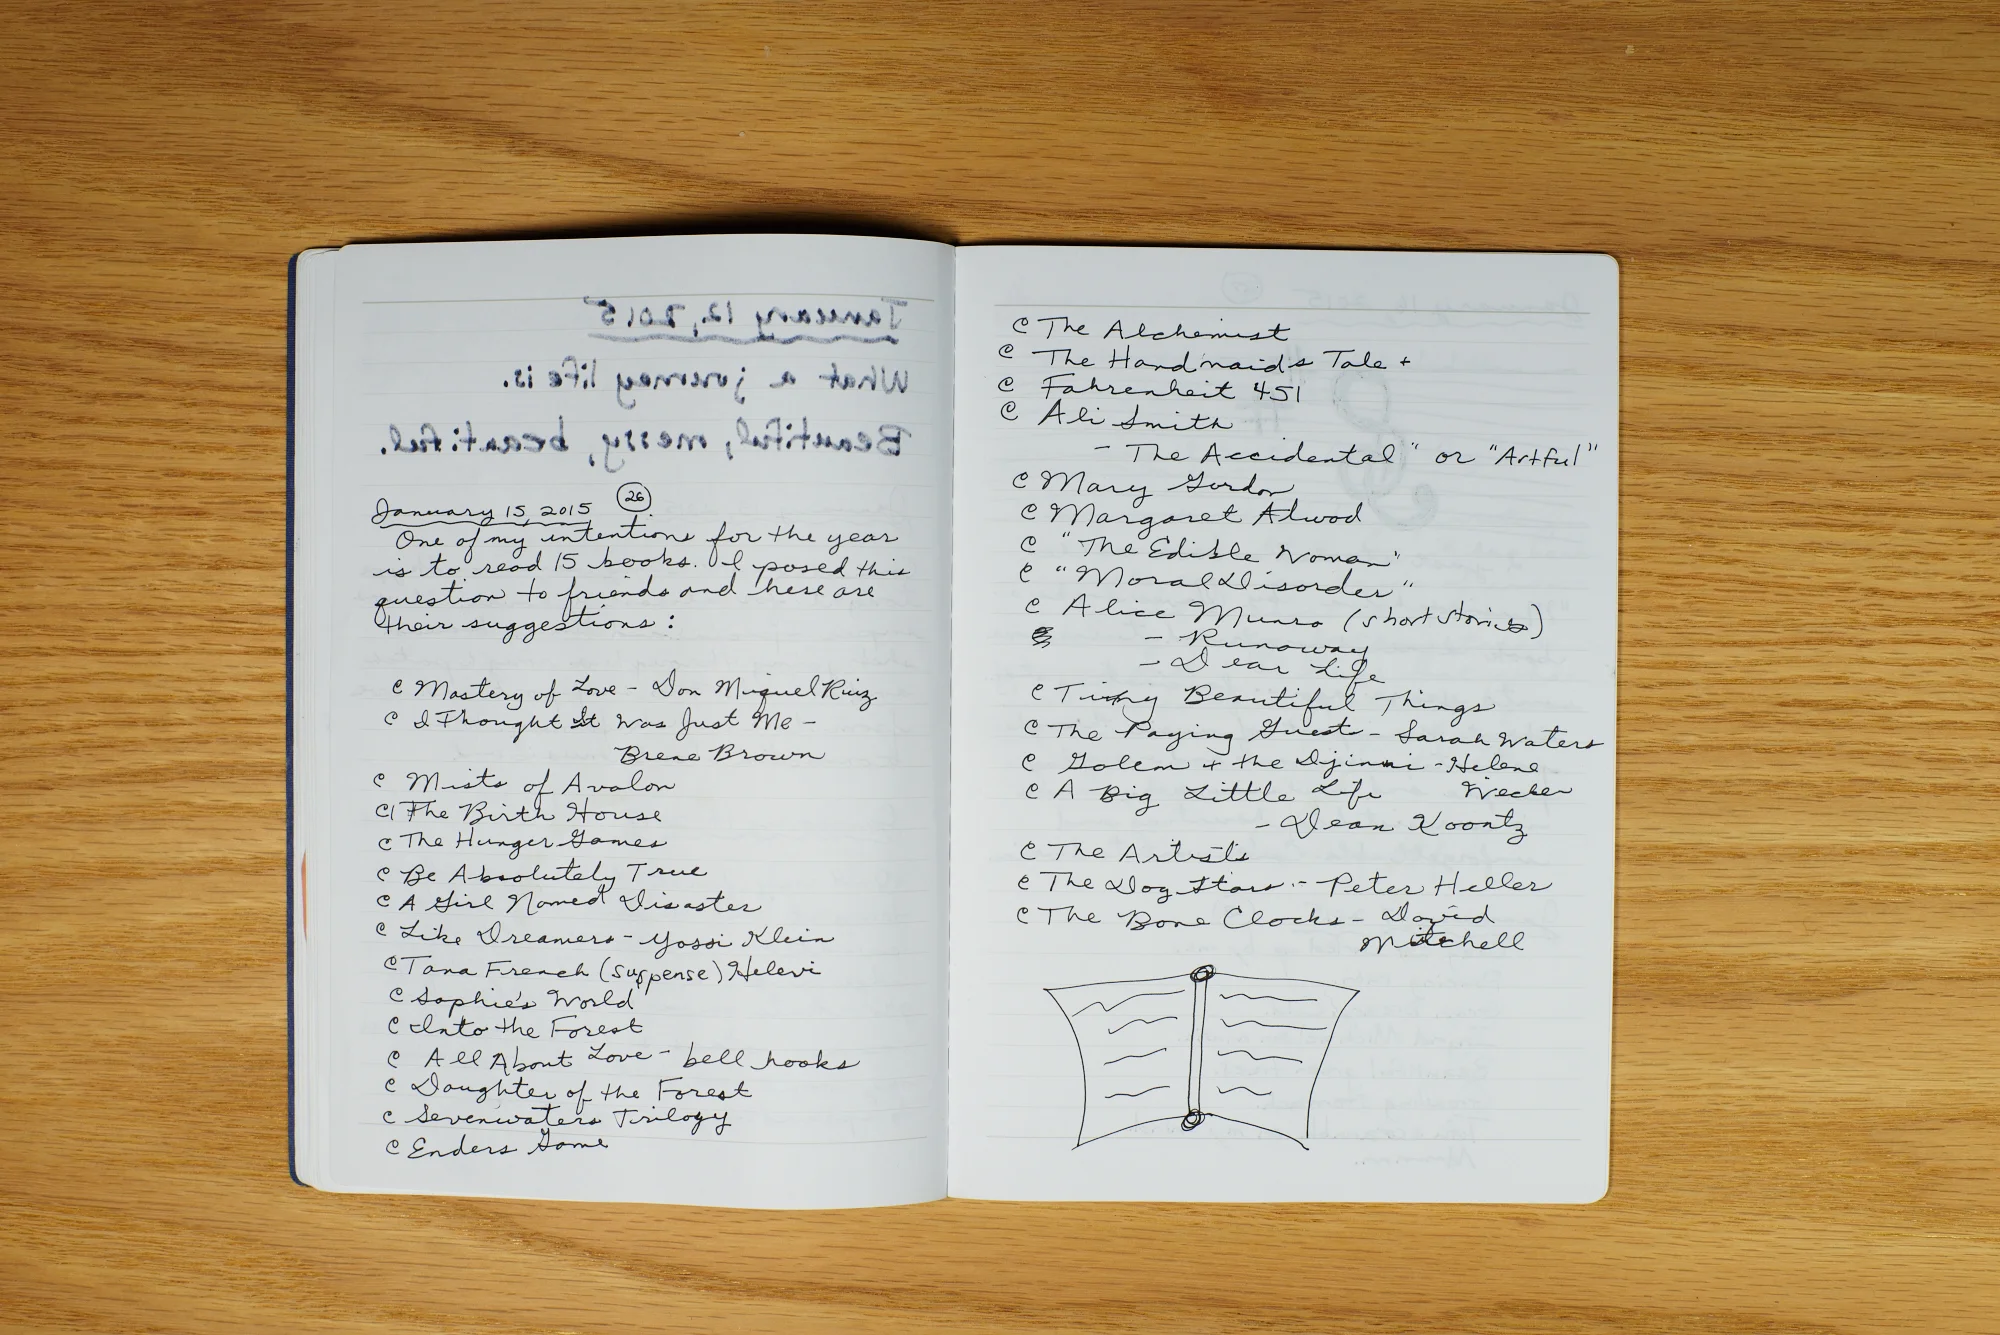 January 12, 2015
What a journey life is.
Beautiful, messy, beautiful.
January 15, 2015 26
One of my intentions for the year
is to read 15 books. I posed this
question to friends and here are
their suggestions:
Mastery of Love - Don Miguel Ruiz
I Thought It Was Just Me -
Brene Brown
Mists of Avalon
The Birth House
The Hunger Games
Be Absolutely True
A Girl Named Disaster
Like Dreamers - Yossi Klein
Tana French (suspense) Helevi
Sophie's World
Into the Forest
All About Love - bell hooks
Daughter of the Forest
Sevenwaters Trilogy
Enders Game
The Alchemist
The Handmaid's Tale +
Fahrenheit 451
Ali Smith
- The Accidental" or "Artful"
Mary Gordon
Margaret Atwod
"The Edible Woman"
"Moral Disorder"
Alice Munro (short stories)
- Runaway
- Dear Life
Tiny Beautiful Things
The Paying Guests - Sarah Waters
Golem + the Djinni - Helene
A Big Little Life Wecker
- Dean Koontz
The Artists
The Dog Stars - Peter Heller
The Bone Clocks - David
Mitchell